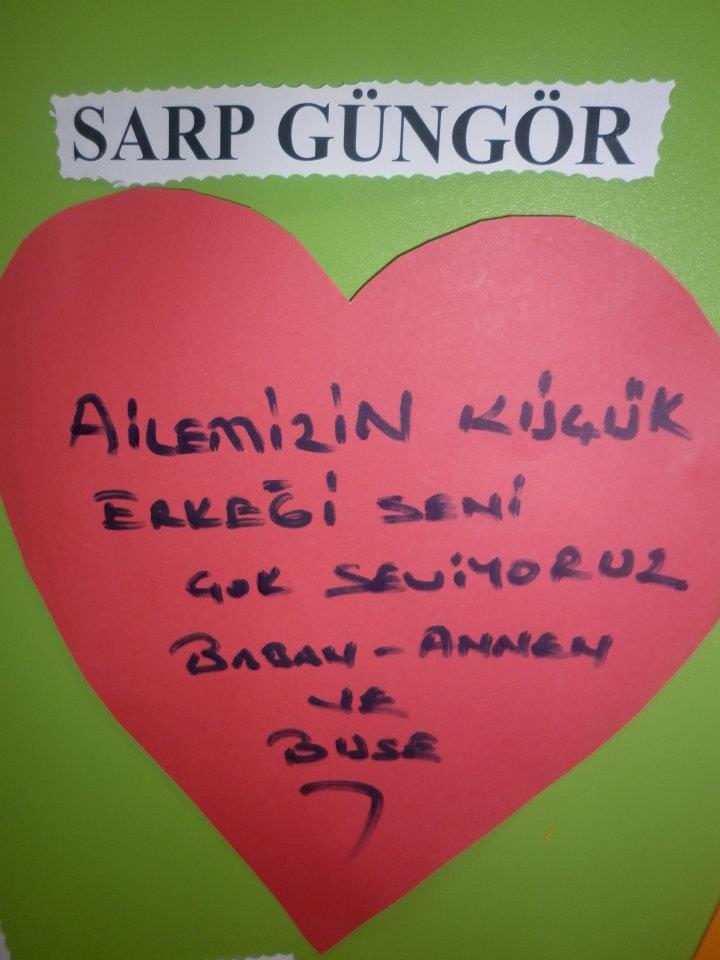 SARP GÜNGÖR
AİLEMİZİN KÜÇÜK
ERKEĞİ SENİ
ÇOK SEVİYORUZ
BABAN - ANNEN
VE
BUSE